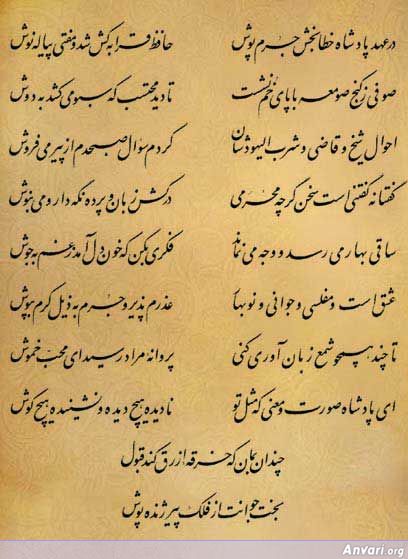 در عهد پادشاه خطابخش جرم پوش حافظ قرابه کش شد و مفتی پیاله نوش
صوفی ز کنج صومعه با پای خم نشست تا دید محتسب که سبو می کشد به دوش
احوال شیخ و قاضی و شرب الیهودشان کردم سؤال صبحدم از پیر می فروش
گفتا نه گفتنی است سخن گرچه محرمی درکش زبان و پرده نگه دار و می بنوش
ساقی بهار می رسد و وجه می نماند فکری بکن که خون دل آمد ز غم به جوش
عشق است و مفلسی و جوانی و نوبهار عذرم پذیر و جرم به ذیل کرم بپوش
تا چند همچو شمع زبان آوری کنی پروانه مراد رسید ای محب خموش
ای پادشاه صورت و معنی که مثل تو نادیده هیچ دیده و نشنیده هیچ گوش
چندان بمان که خرقه ازرق کند قبول
بخت جوانت از فلک پیر ژنده پوش
Anvari.org